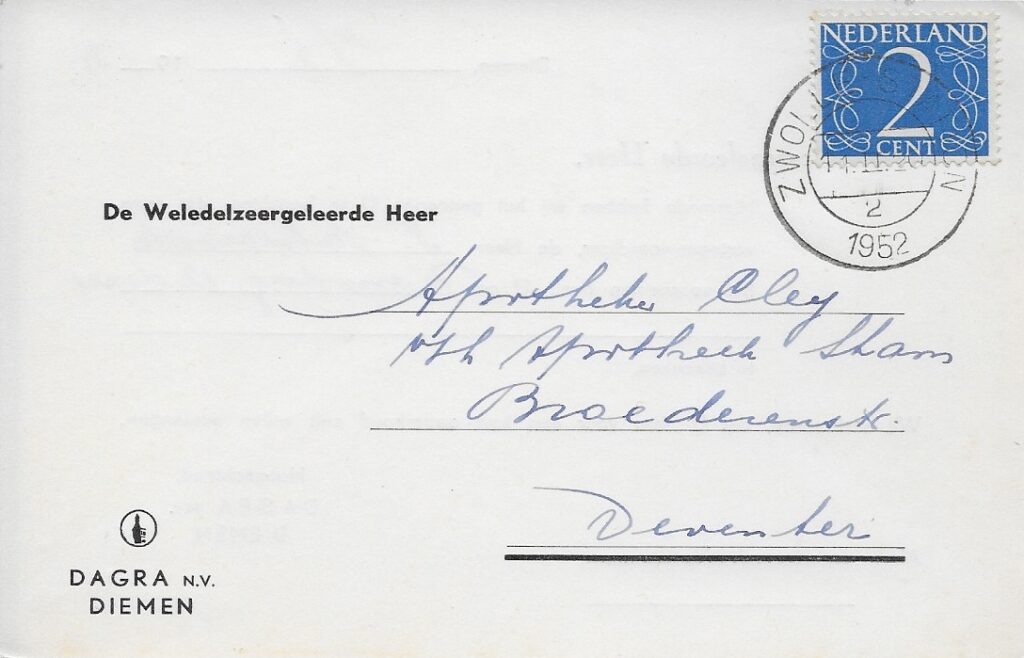 NEDERLAND
2
CENT
ZWOLLE
2
1952
De Weledelzeergeleerde Heer
Apotheker Cley
v/h Apotheek Stam
Broederenstr.
Deventer
DAGRA N.V.
DIEMEN